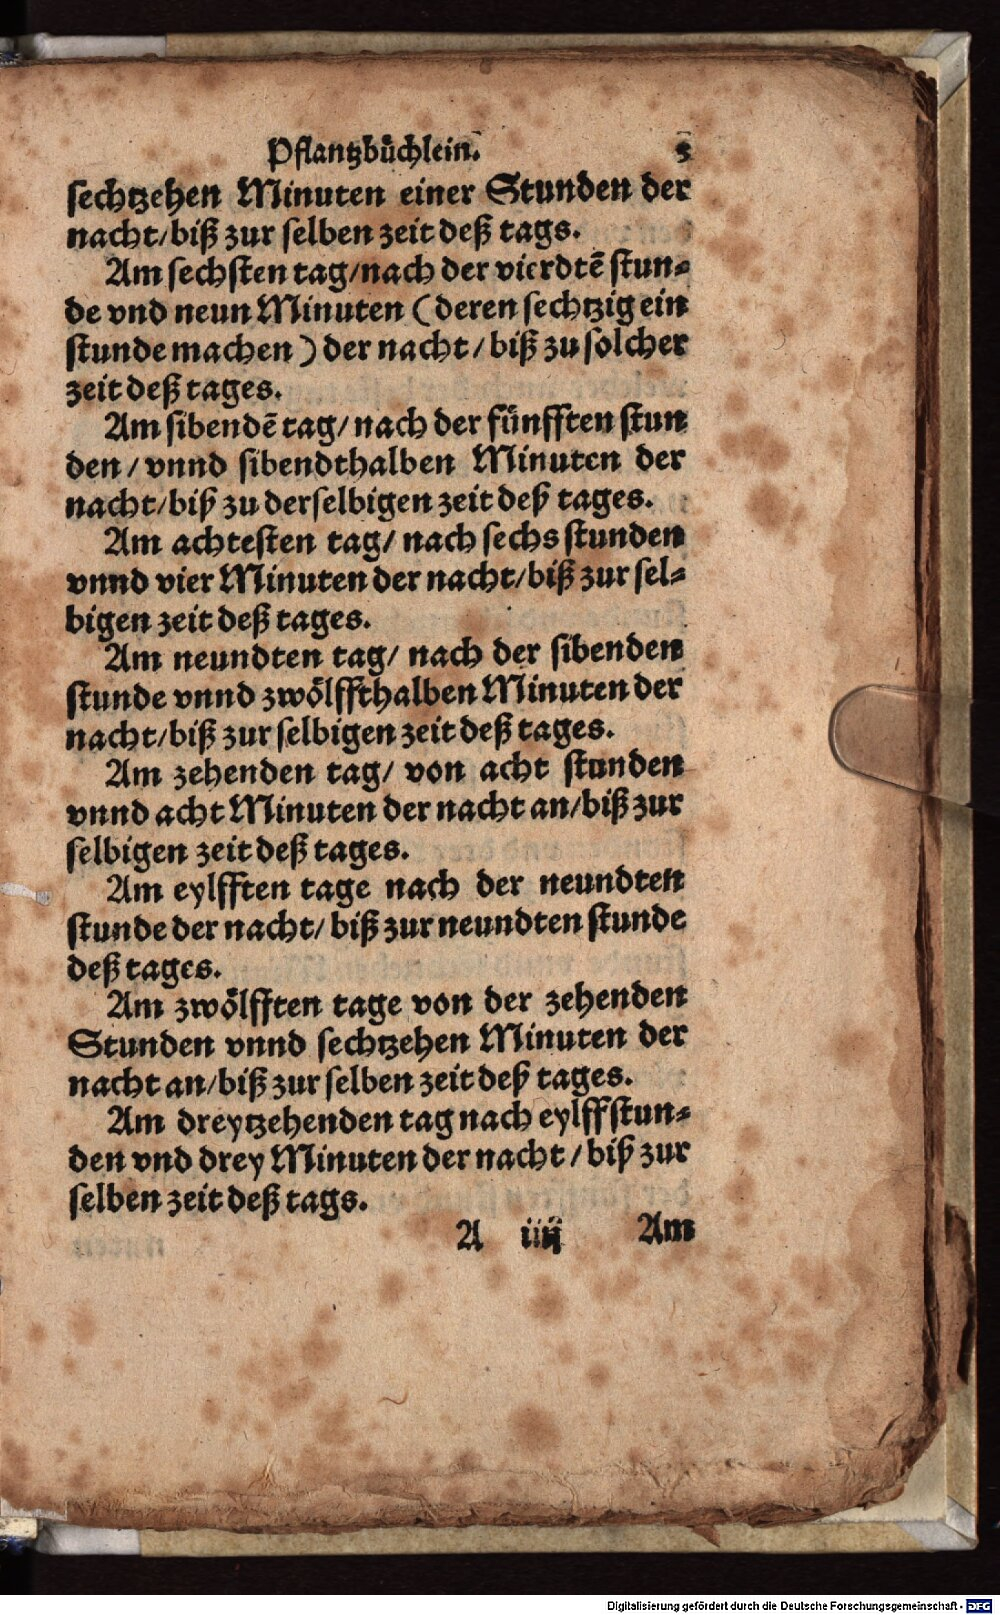 Pflantzbüchlein. 5
sechtzehen Minuten einer Stunden der
nacht/biß zur selben zeit deß tags.
Am sechsten tag/nach der vierdtẽ stun⸗
de vnd neun Minuten (deren sechtzig ein
stunde machen) der nacht/biß zu solcher
zeit deß tages.
Am sibendẽ tag/nach der fünfften stun
den/vnnd sibendthalben Minuten der
nacht/biß zu derselbigen zeit deß tages.
Am achtesten tag/nach sechs stunden
vnnd vier Minuten der nacht/biß zur sel⸗
bigen zeit deß tages.
Am neundten tag/nach der sibenden
stunde vnnd zwölffthalben Minuten der
nacht/biß zur selbigen zeit deß tages.
Am zehenden tag/von acht stunden
vnnd acht Minuten der nacht an/biß zur
selbigen zeit deß tages.
Am eylfften tage nach der neundten
stunde der nacht/biß zur neundten stunde
deß tages.
Am zwölfften tage von der zehenden
Stunden vnnd sechtzehen Minuten der
nacht an/biß zur selben zeit deß tages.
Am dreytzehenden tag nach eylff stun⸗
den vnd drey Minuten der nacht/biß zur
selben zeit deß tags.
A iiij Am
Digitalisierung gefördert durch die Deutsche Forschungsgemeinschaft - DFG